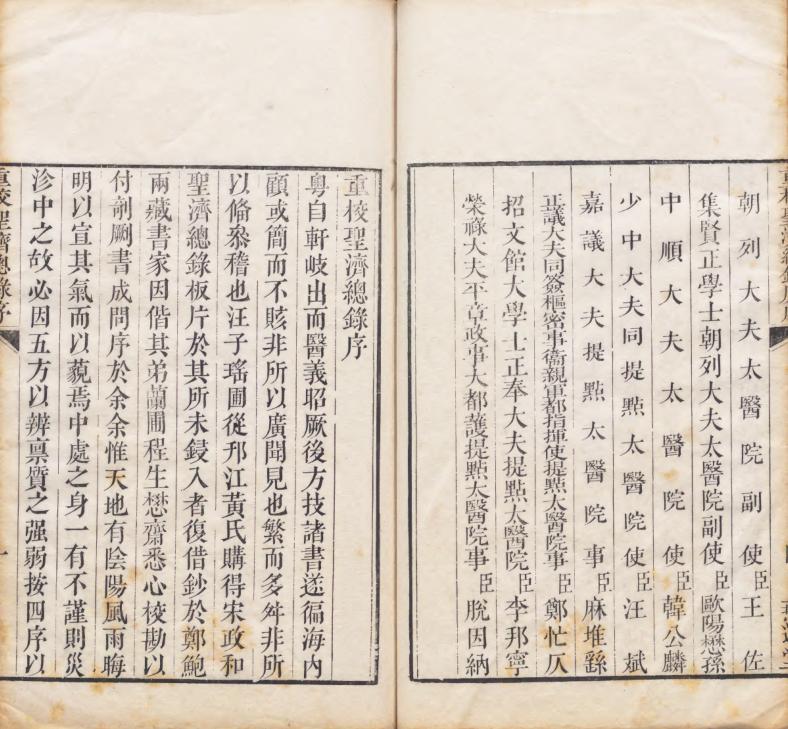 朝列大夫太醫院副使臣王佐
集賢正學士朝列大夫太醫院副使臣歐陽懋孫
中順大夫太醫院使臣韓公麟
少中大夫同提點太醫院使臣汪斌
嘉議大夫提點太醫院事臣麻堆
正議大夫同簽樞密事衞親軍都指揮使提點太醫院事臣鄭忙仄
招文館大學士正奉大夫提點太醫院臣李邦寧
榮祿大夫平章政事大都護提點太醫院事臣脫因納
重校聖濟總錄序
粵自軒岐出而醫義昭厥後方技諸書遂徧海内
顧或簡而不賅非所以廣聞見也繁而多舛非所
以備叅稽也汪子瑤圃從邗江黃氏購得宋政和
聖濟總錄板片於其所未鋟入者復借鈔於鄭鮑
兩藏書家因偕其弟蘭圃程生懋齋悉心校勘以
付剞劂書成問序於余余惟天地有陰陽風雨晦
明以宣其氣而以藐焉中處之身一有不謹則災
沴中之故必因五方以辨禀質之强弱按四序以
重校聖濟總錄序
一